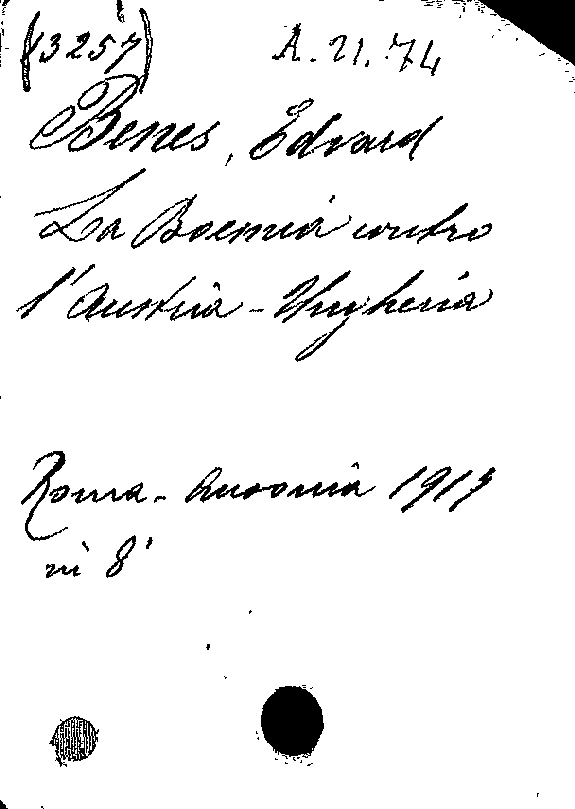 (3257) A.21.74
Benes, Edvard
La Boemia contro
l'Austria-Ungheria
Roma - Ausonia 1917
in 8°